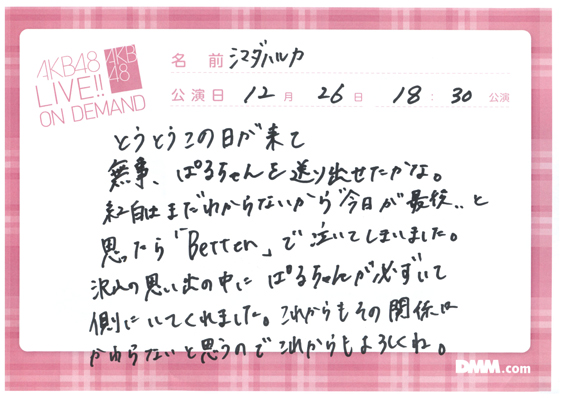 AKB48
LIVE!!
ON DEMAND
AKB
48
名前 シマダハルカ
公演日 12月 26日 18:30 公演
とうとうこの日が来て
無事、ぱるちゃんを送り出せたかな。
紅白はまだわからないから今日が最後..と
思ったら「Better」で泣いてしまいました。
沢山の思い出の中にぱるちゃんが必ずいて
側にいてくれました。これからもその関係は
かわらないと思うのでこれからもよろしくね。
DMM.com